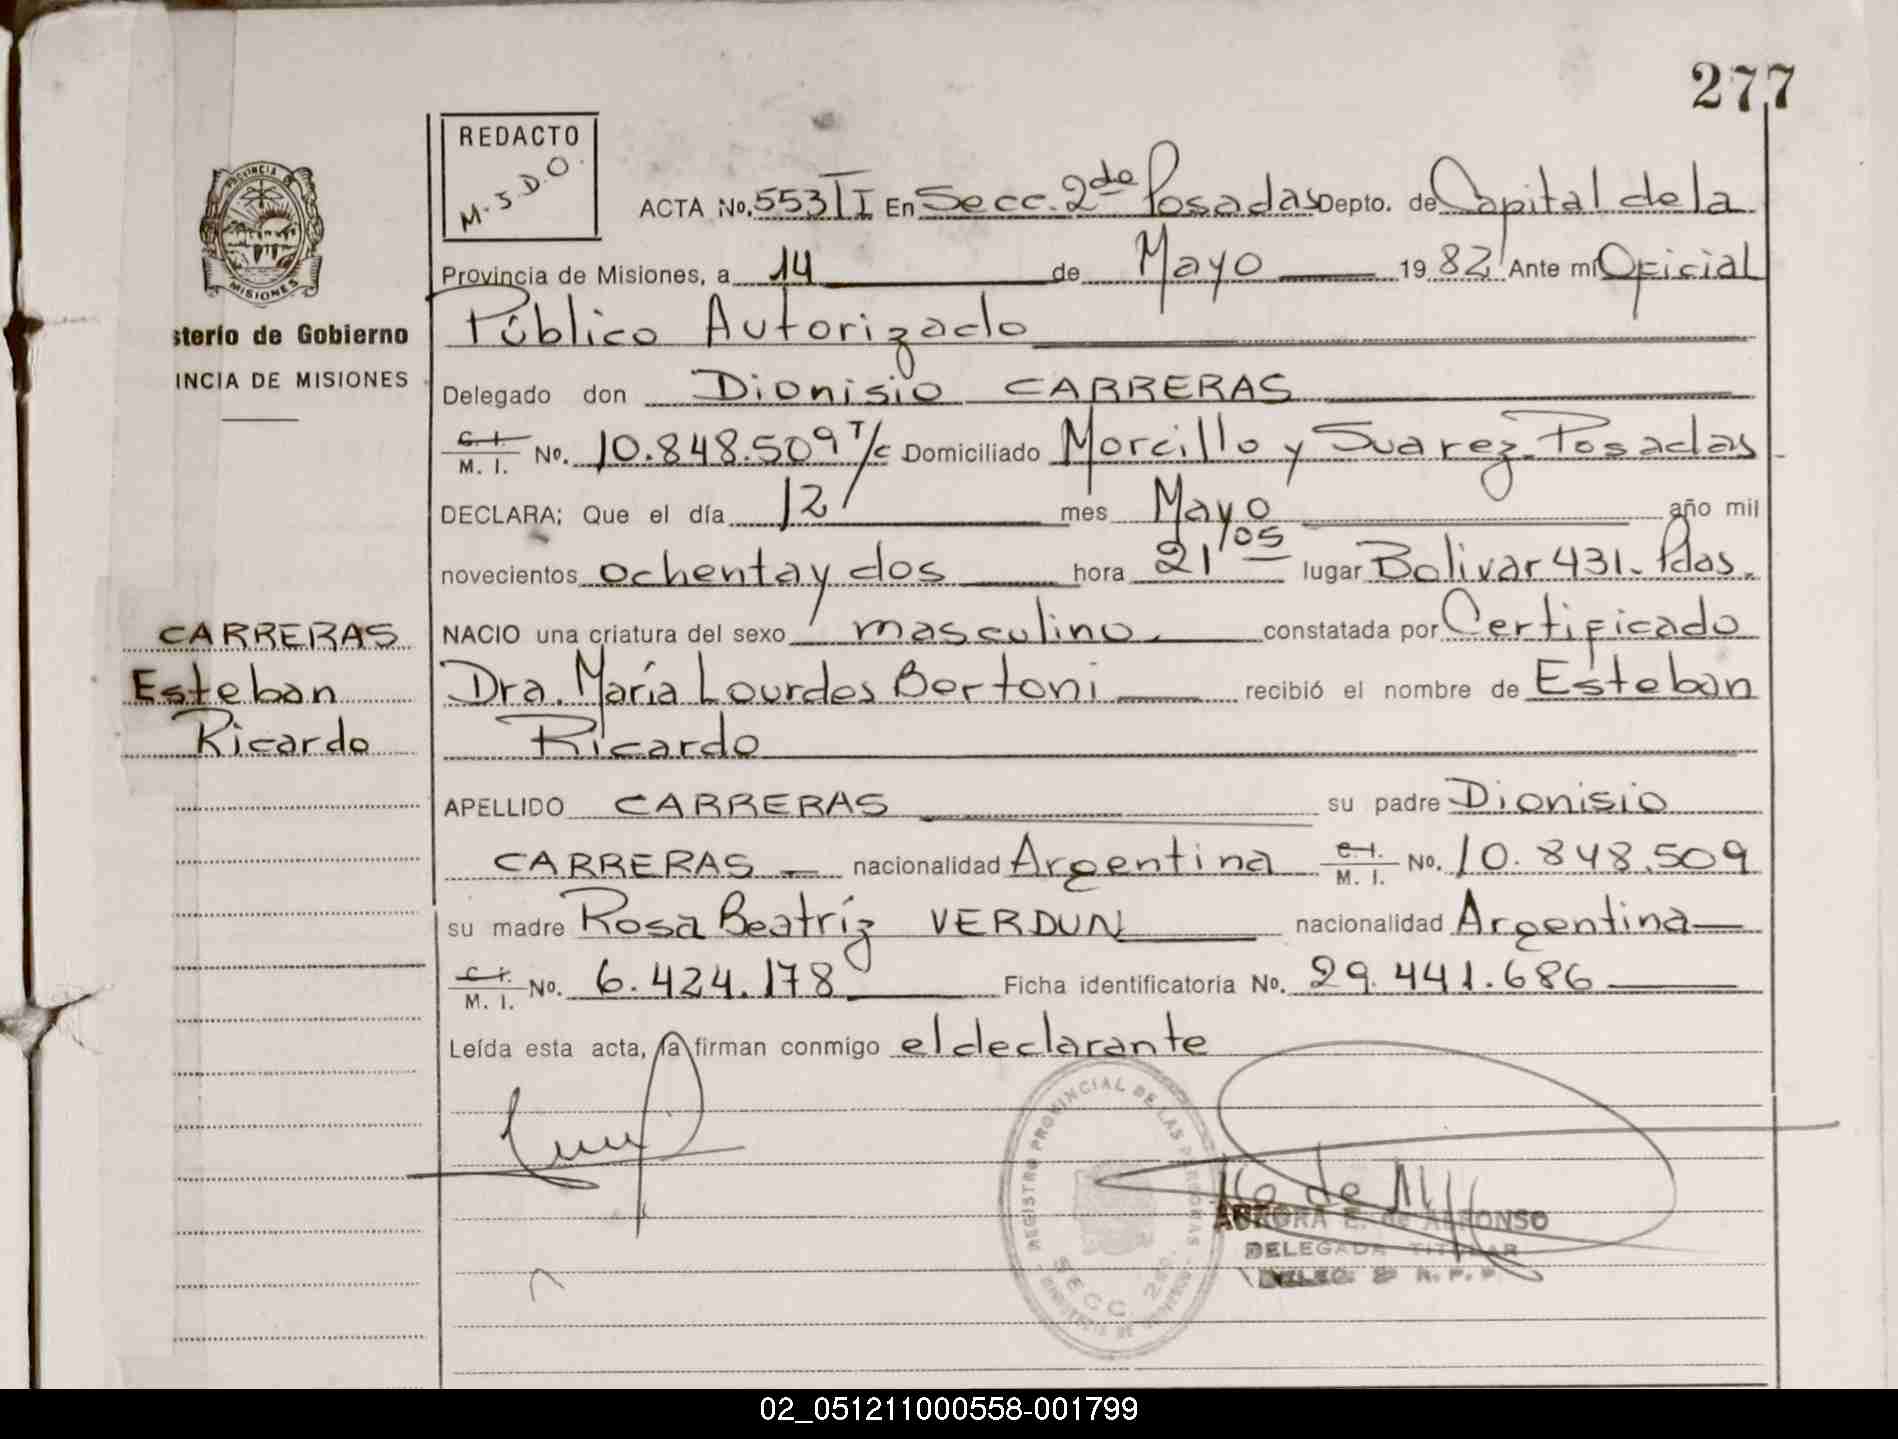 277
REDACTO
M.S.D.O.
PROVINCIA DE
MISIONES
sterio de Gobierno
INCIA DE MISIONES
ACTA No. 553 TI En Secc. 2da Posadas Depto. de Capital de la
Provincia de Misiones, a 14 de Mayo 19 82 Ante mi Oficial
Público Autorizado
Delegado don Dionisio CARRERAS
C. I. M. I. No. 10.848.509 T/c Domiciliado Morcillo y Suarez-Posadas
DECLARA; Que el día 12 mes Mayo año mil
novecientos ochenta y dos hora 21/05 lugar Bolivar 431- Pdas.
CARRERAS
Esteban
Ricardo
NACIO una criatura del sexo masculino constatada por Certificado
Dra. María Lourdes Bertoni recibió el nombre de Esteban
Ricardo
APELLIDO CARRERAS su padre Dionisio
CARRERAS nacionalidad Argentina C. I. M. I. No. 10.848.509
su madre Rosa Beatríz VERDUN nacionalidad Argentina
C. I. M. I. No. 6.424.178 Ficha identificatoria No. 29.441.686
Leída esta acta, la firman conmigo el declarante
REGISTRO PROVINCIAL DE LAS PERSONAS
SECC. 2da.
AURORA E. de ALFONSO
DELEGADA TITULAR
02_051211000558-001799